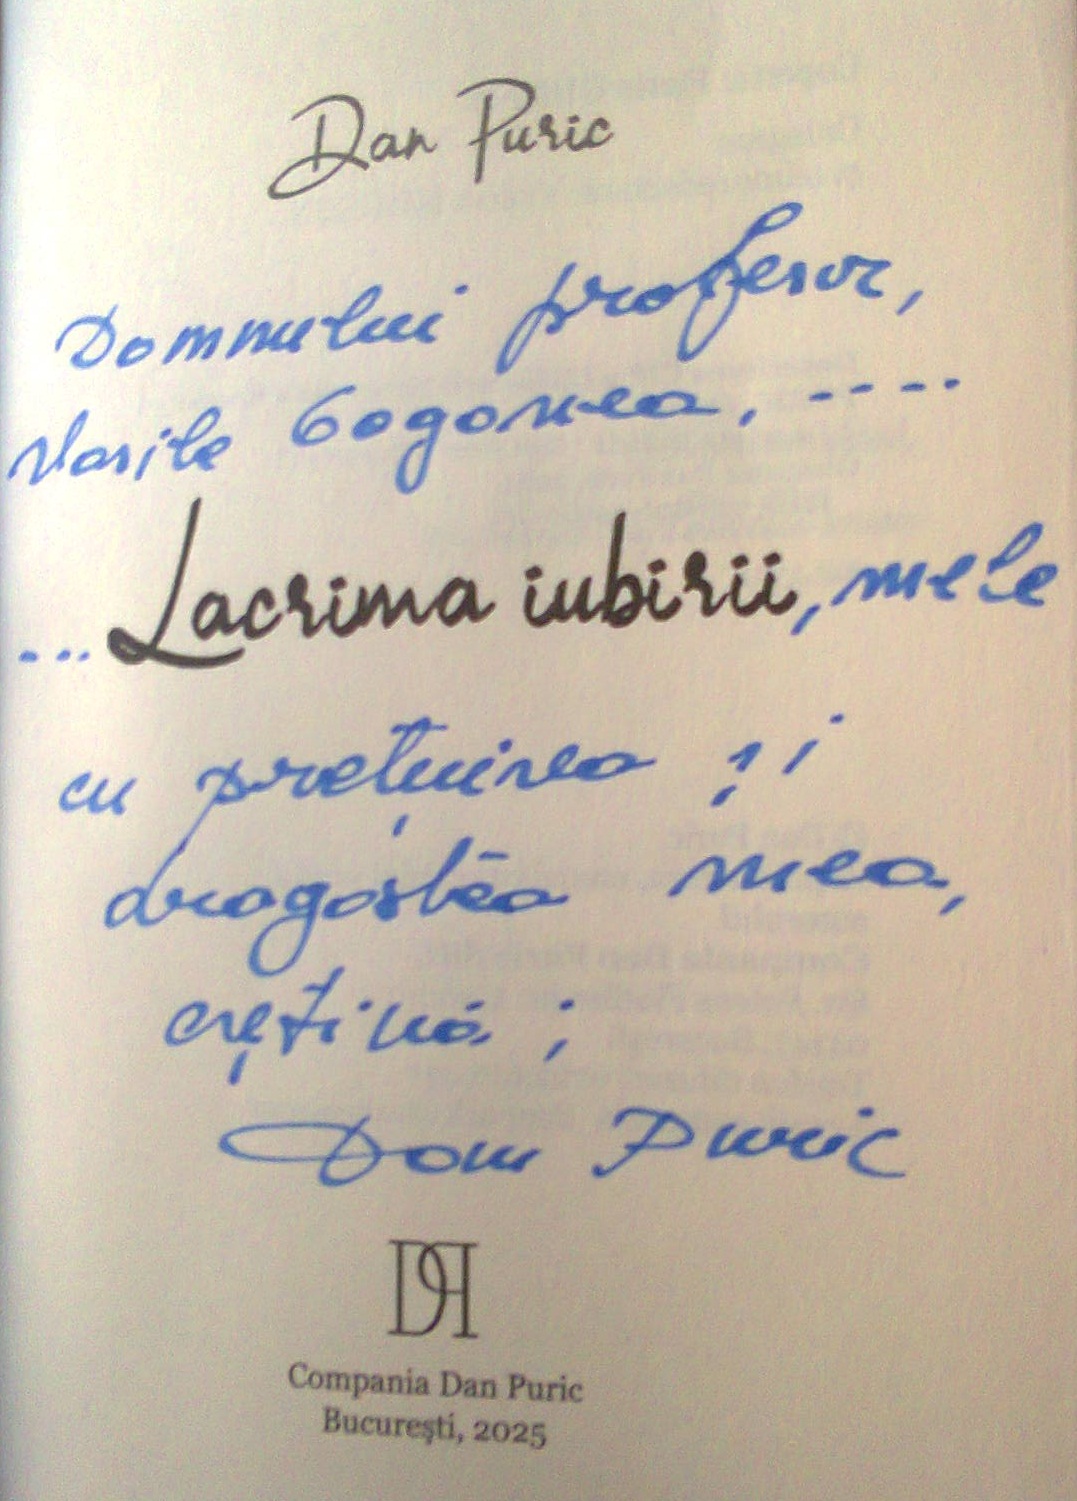 Dan Puric
Domnului profesor,
Vasile Gogonea, ----
... Lacrima iubirii, mele
cu prețuirea și
dragostea mea,
creștină ;
Dan Puric
Compania Dan Puric
București, 2025